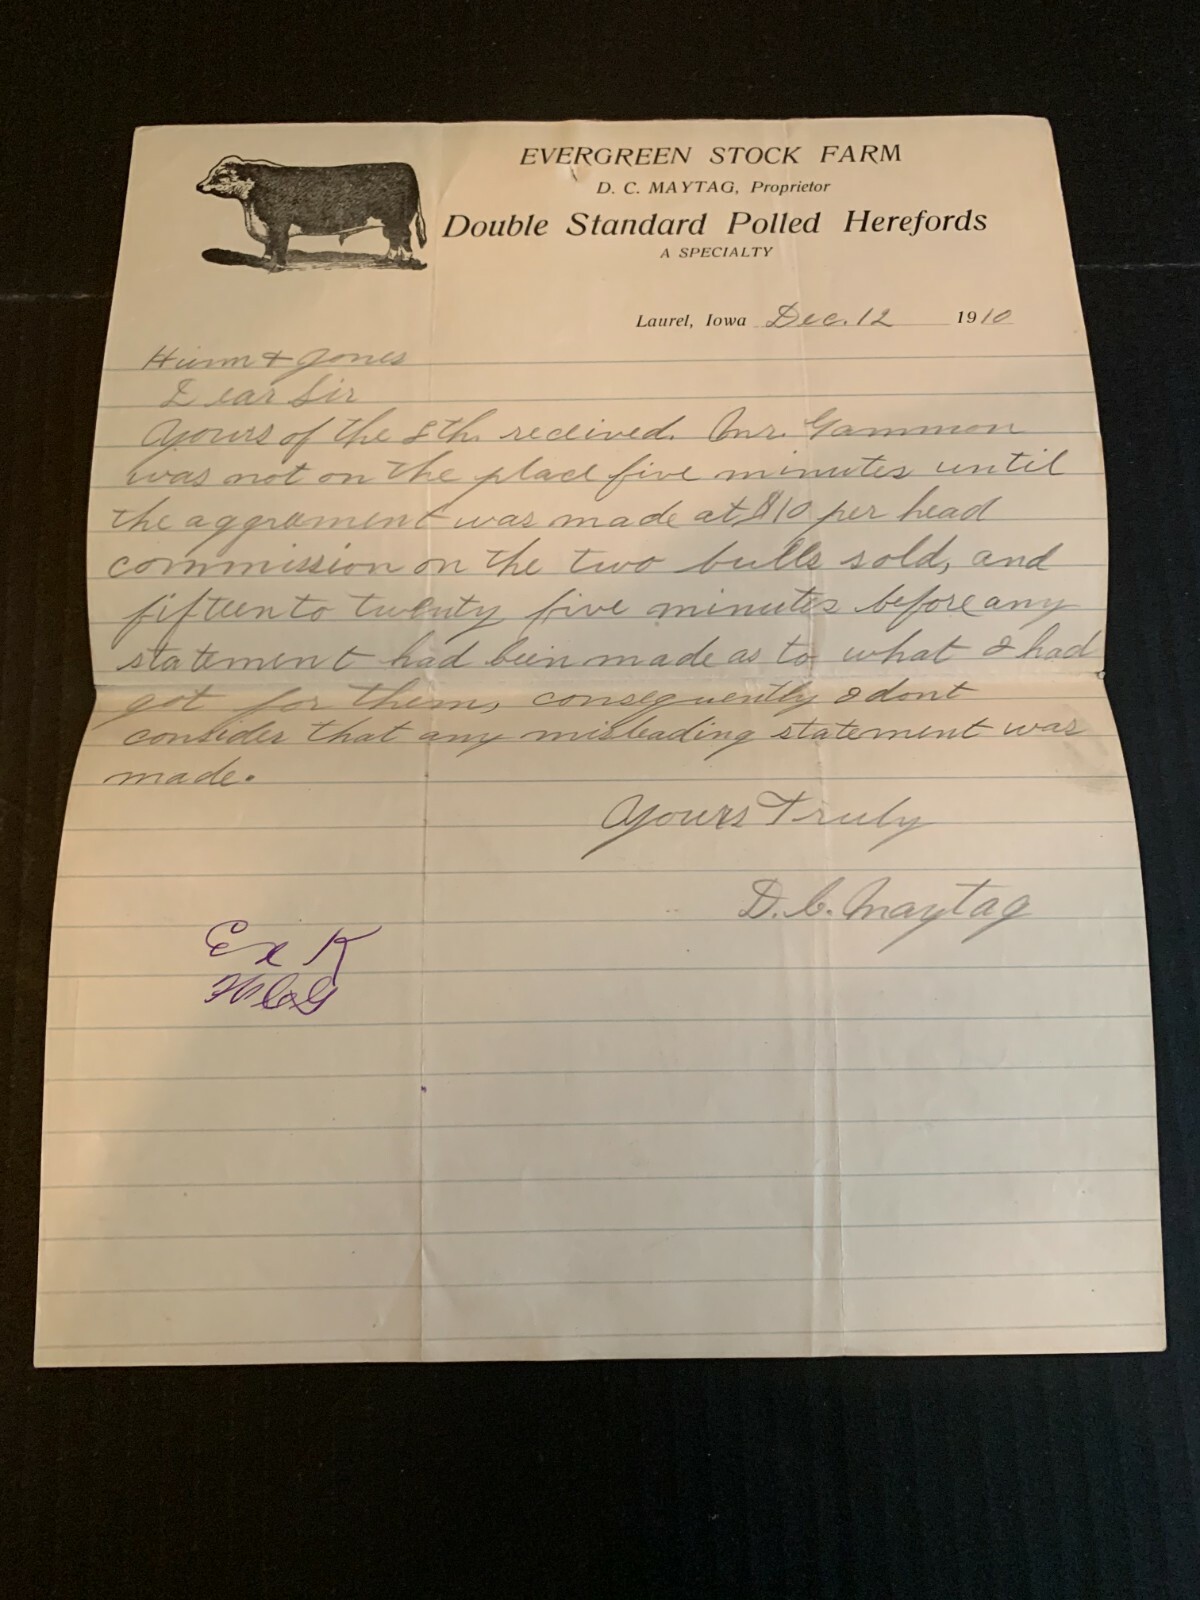 EVERGREEN STOCK FARM
D. C. MAYTAG, Proprietor
Double Standard Polled Herefords
A SPECIALTY
Laurel, Iowa Dec. 12 1910
& Jones
Dear Sir
Yours of the 8th. received. Mr. Gammon
was not on the place five minutes until
the aggrament was made at $10 per head
commission on the two bulls sold, and
fifteen to twenty five minutes before any
statement had been made as to what I had
got for them, consequently I dont
consider that any misleading statement was
made.
Yours Truly
D. C. Maytag
Ex K